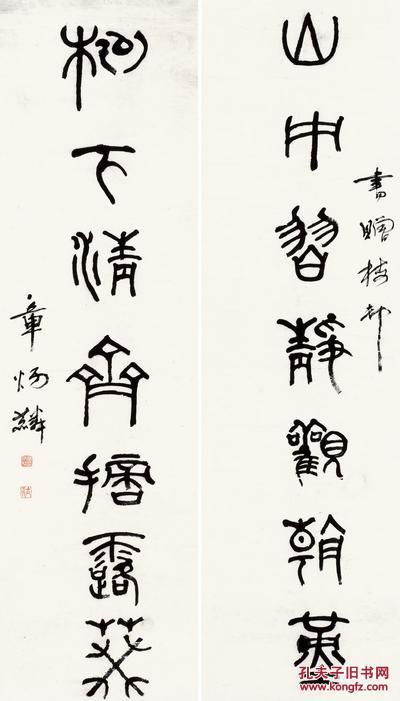 山中習靜觀朝堇
書贈
松下清齊摘露葵
章炳麟
孔夫子旧书网
www.kongfz.com